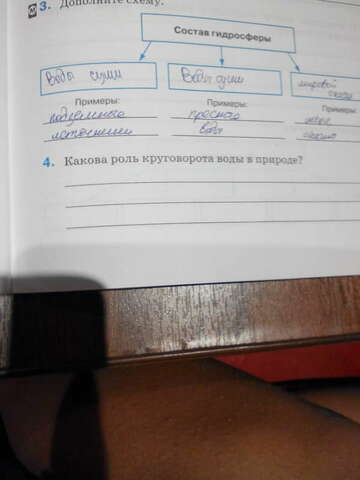 3. Дополните схему.
Состав гидросферы
Воды суши
Воды суши
мировой океан
Примеры:
Примеры:
Примеры:
подземного
пресная
источники
вода
4. Какова роль круговорота воды в природе?